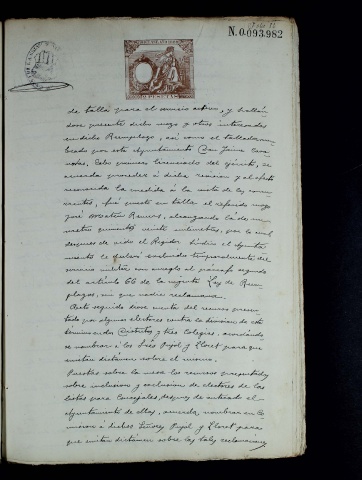 N.0.093,982
de tallas para el servicio activo, y hallán
dose presente dicho mozo y otros interesados
en dicho Reemplazo, así como el tallador nom
brado por este Ayuntamiento Don Jaime
Cabo primero licenciado del ejército, se
acuerda proceder á dicha revision y al efecto
reconocida la medida á la vista de los concu
rrentes, fué puesto en talla el referido mozo
José Roures, alcanzando la de un
metro quinientos veinte milímetros, por lo cual
despues de oido el Regidor Síndico el Ayunta
miento le declaró excluido temporalmente del
servicio militar con arreglo al párrafo segundo
del artículo 66 de la vigente Ley de Reem
plazos, sin que nadie reclamara.
Acto seguido diose cuenta del recurso presen
tado por algunos electores contra la division de este
término en Distritos y tres Colegios, acordando
se nombrar á los Sres Pujol y Lloret para que
emitan dictámen sobre el mismo.
Puestas sobre la mesa los recursos presentados
sobre inclusion y exclusion de electores de las
listas para Concejales, despues de enterado el
Ayuntamiento de ellas, acuerda nombrar en Co
mision á dichos Señores Pujol y Lloret para
que emitan dictámen sobre las tales reclamaciones